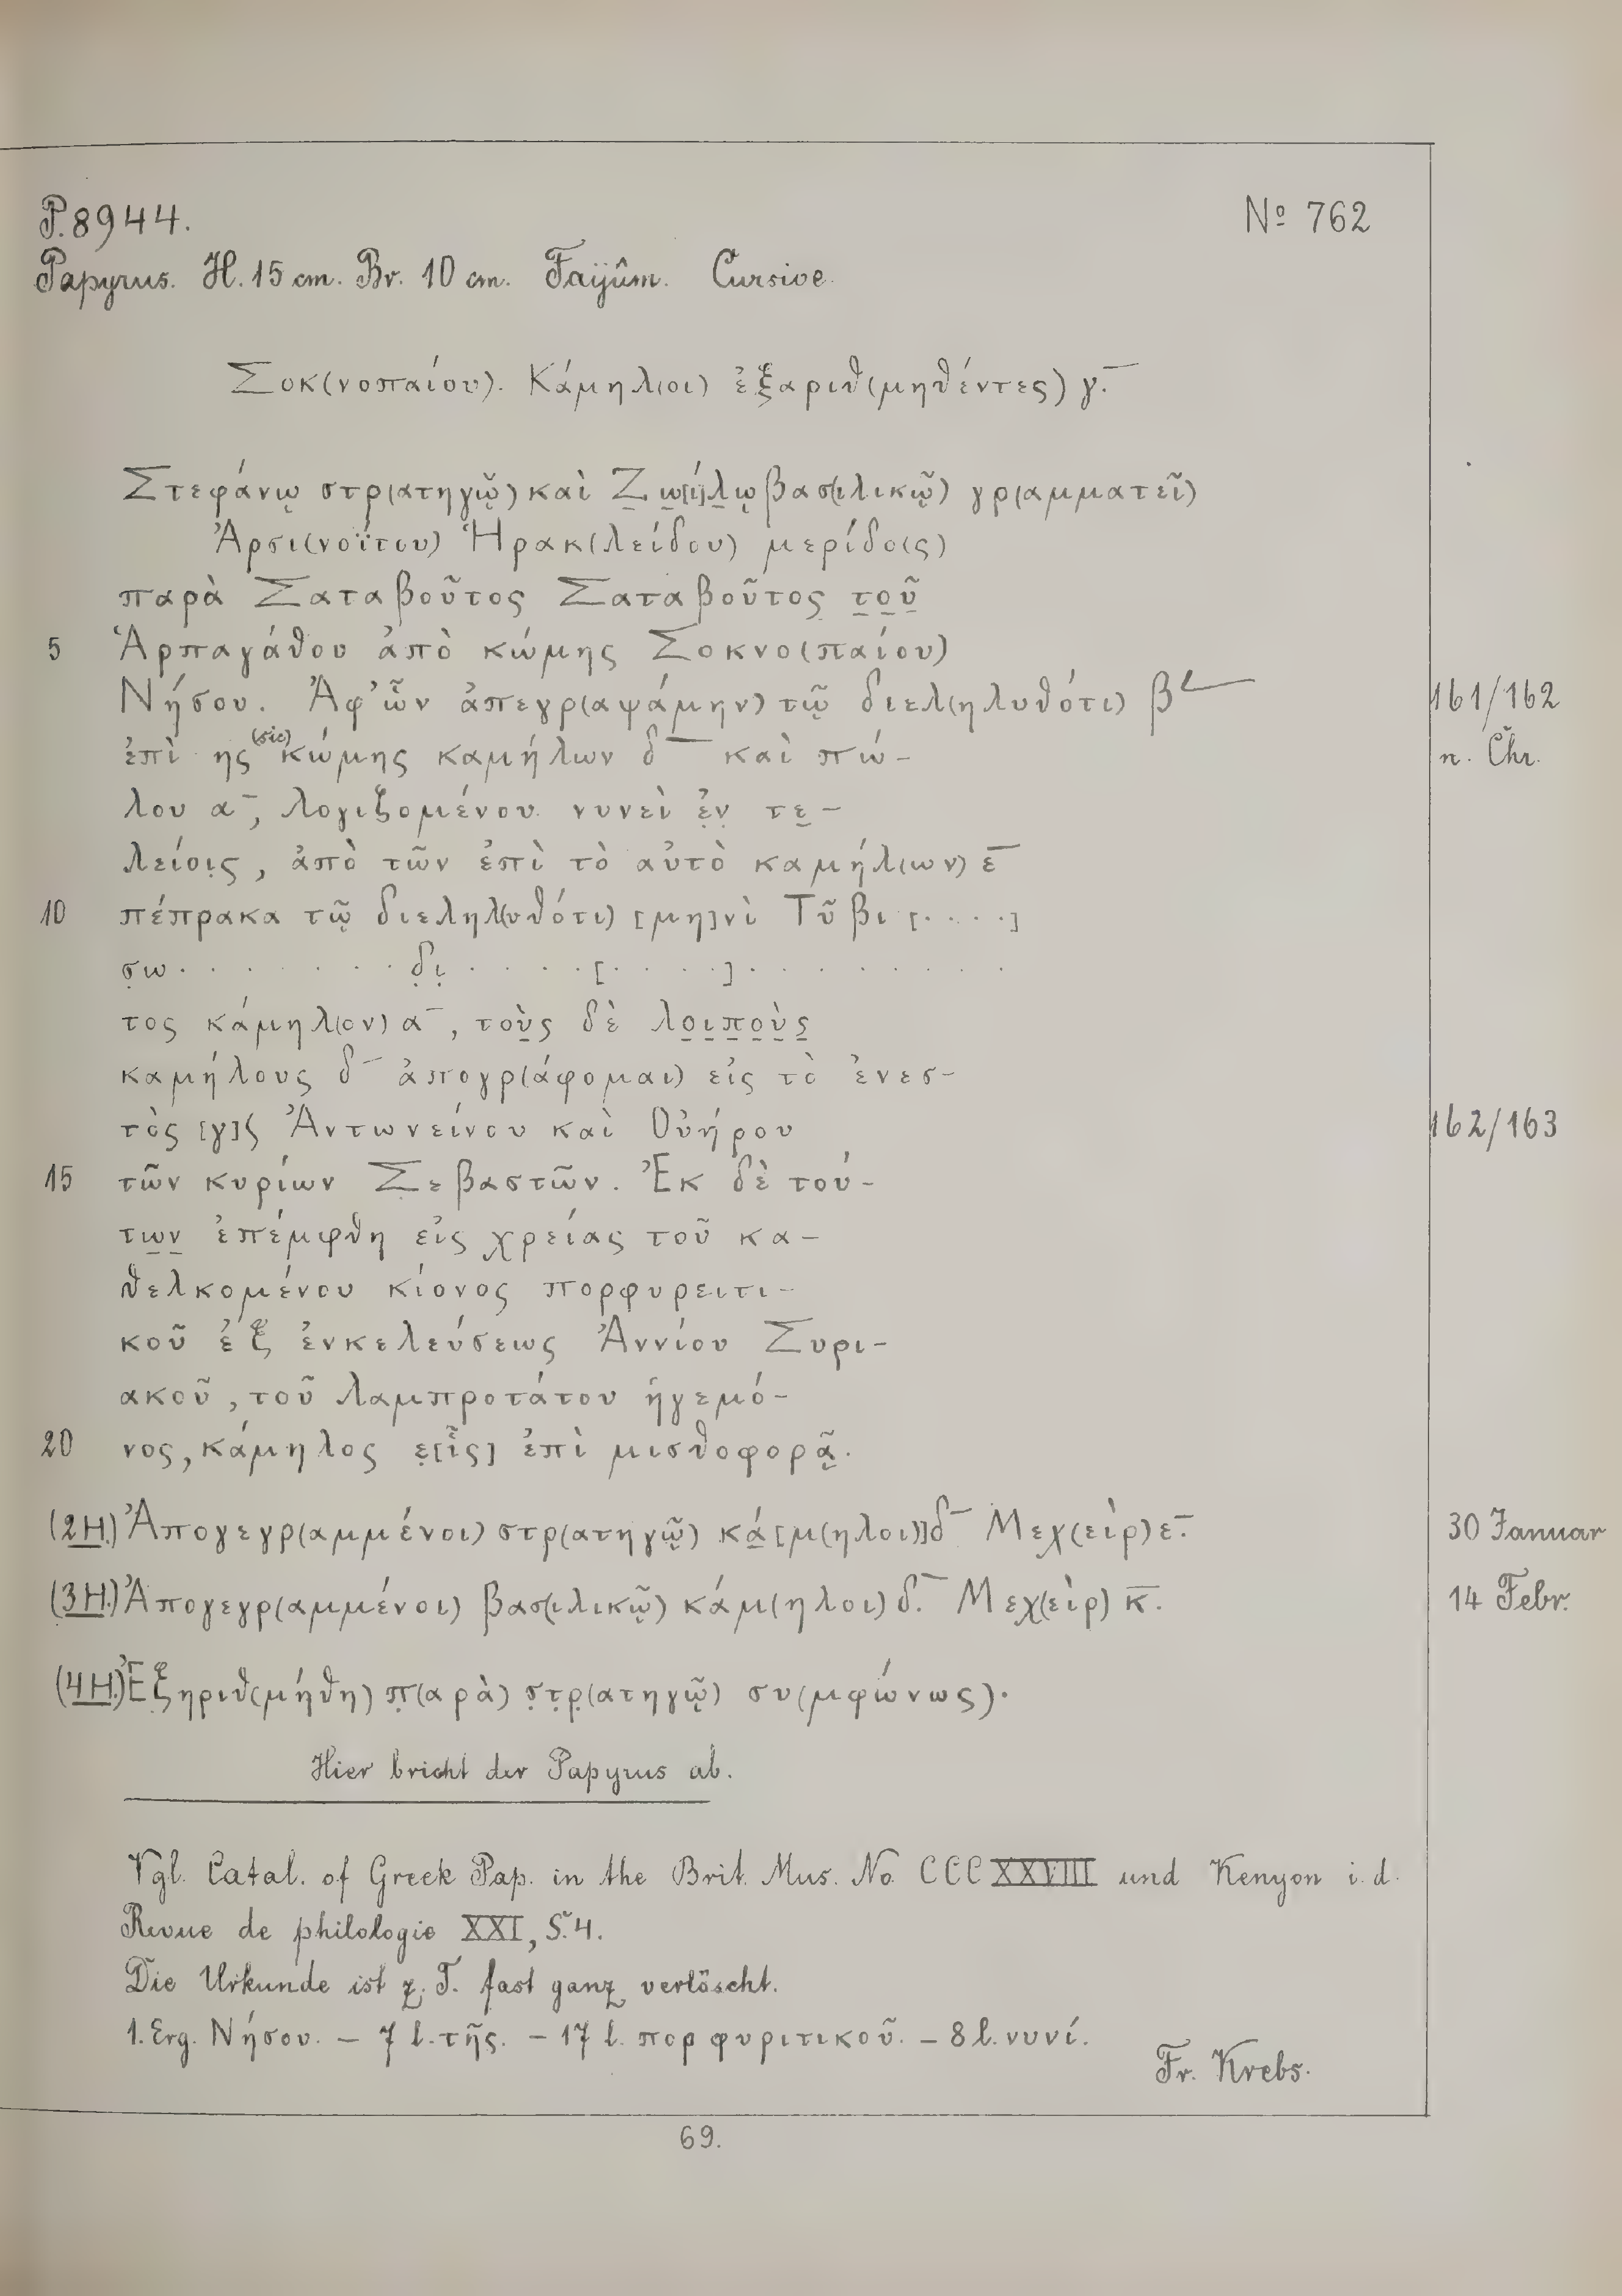 P. 8944.
Nº 762
Papyrus. H. 15 cm. Br. 10 cm. Faijûm. Cursive.
Σοκ(νοπαίου). Κάμηλ(οι) ἐξαριθ(μηθέντες) γ.̅
Στεφάνῳ στρ(ατηγῷ) καὶ Ζω[ί]λῳ βασ(ιλικῷ) γρ(αμματεῖ)
Ἀρσι(νοΐτου) Ἡρακ(λείδου) μερίδο(ς)
παρὰ Σαταβοῦτος Σαταβοῦτος τοῦ
5 Ἁρπαγάθου ἀπὸ κώμης Σοκνο(παίου)
Νήσου. Ἀφ’ ὧν ἀπεγρ(αψάμην) τῷ διελ(ηλυθότι) β L
161/162
ἐπὶ ης (sic) κώμης καμήλων δ̅ καὶ πώ-
n. Chr.
λου α̅, λογιζομένου νυνεὶ ἐ̣ν̣ τε̣-
λείοι̣ς, ἀπὸ τῶν ἐπὶ τὸ αὐτὸ καμήλ(ων) ε̅
10 πέπρακα τῷ διεληλ(υθότι) [μη]νὶ Τῦβι [....]
σ̣ω........δ̣ι̣.....[....].........
τος κάμηλ(ον) α̅, τοὺς δὲ λοιποὺς
καμήλους δ̅ ἀπογρ(άφομαι) εἰς τὸ ἐνεσ-
τὸς [γ]ϛ Ἀντωνείνου καὶ Οὐήρου
162/163
15 τῶν κυρίων Σ̣εβαστῶν. Ἐκ δὲ τού-
των ἐπέμφθη εἰς χρείας τοῦ κα-
θελκομένου κίονος πορφυρειτι-
κοῦ ἐξ ἐνκελεύσεως Ἀννίου Συρι-
ακοῦ, τοῦ λαμπροτάτου ἡγεμό-
20 νος, κάμηλος ε̣[ἷς] ἐπὶ μισθοφορᾷ̣.
(2H.) Ἀπογεγρ(αμμένοι) στρ(ατηγῷ) κά[μ(ηλοι)] δ̅ Μεχ(εὶρ) ε̅.
30 Januar
(3H.) Ἀπογεγρ(αμμένοι) βασ(ιλικῷ) κάμ(ηλοι) δ.̅ Μεχ(εὶρ) κ̅.
14 Febr.
(4H.) Ἐξ̣ηριθ(μήθη) π̣(αρὰ) σ̣τ̣ρ̣(ατηγῷ) συ(μφώνως).
Hier bricht der Papyrus ab.
Vgl. Catal. of Greek Pap. in the Brit. Mus. No. CCCXXVIII und Kenyon i. d.
Revue de philologie XXI, S. 4.
Die Urkunde ist z. T. fast ganz verlöscht.
1. Erg. Νήσου. – 7 l. τῆς. – 17 l. πορφυριτικοῦ. – 8 l. νυνί.
Fr. Krebs.
69.